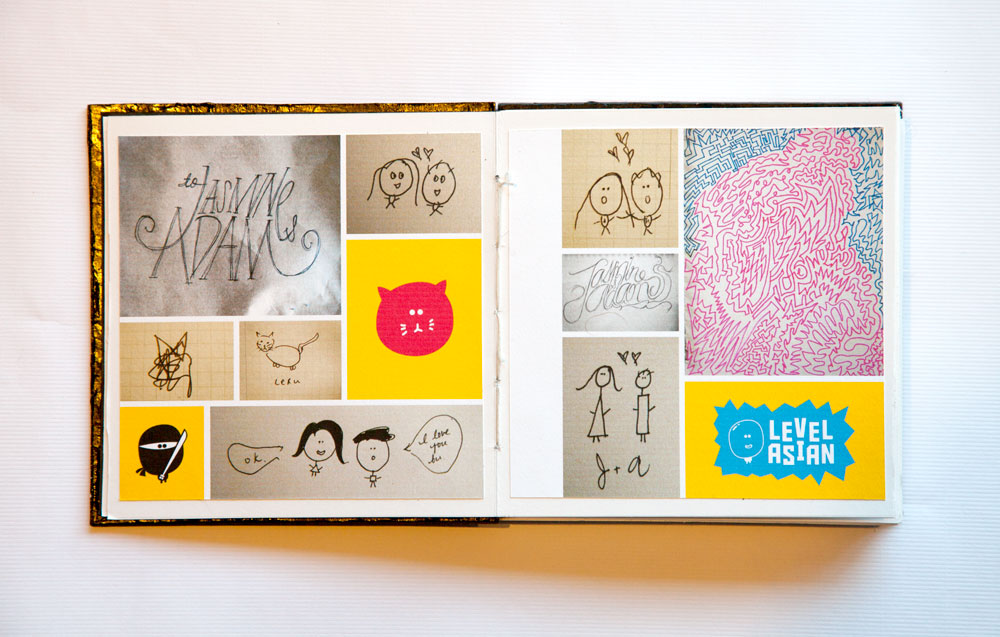 to JASMINE
ADAM is
ok.
i love
you
bu
Jasmine
Adam is
J + A
LEVEL
ASIAN